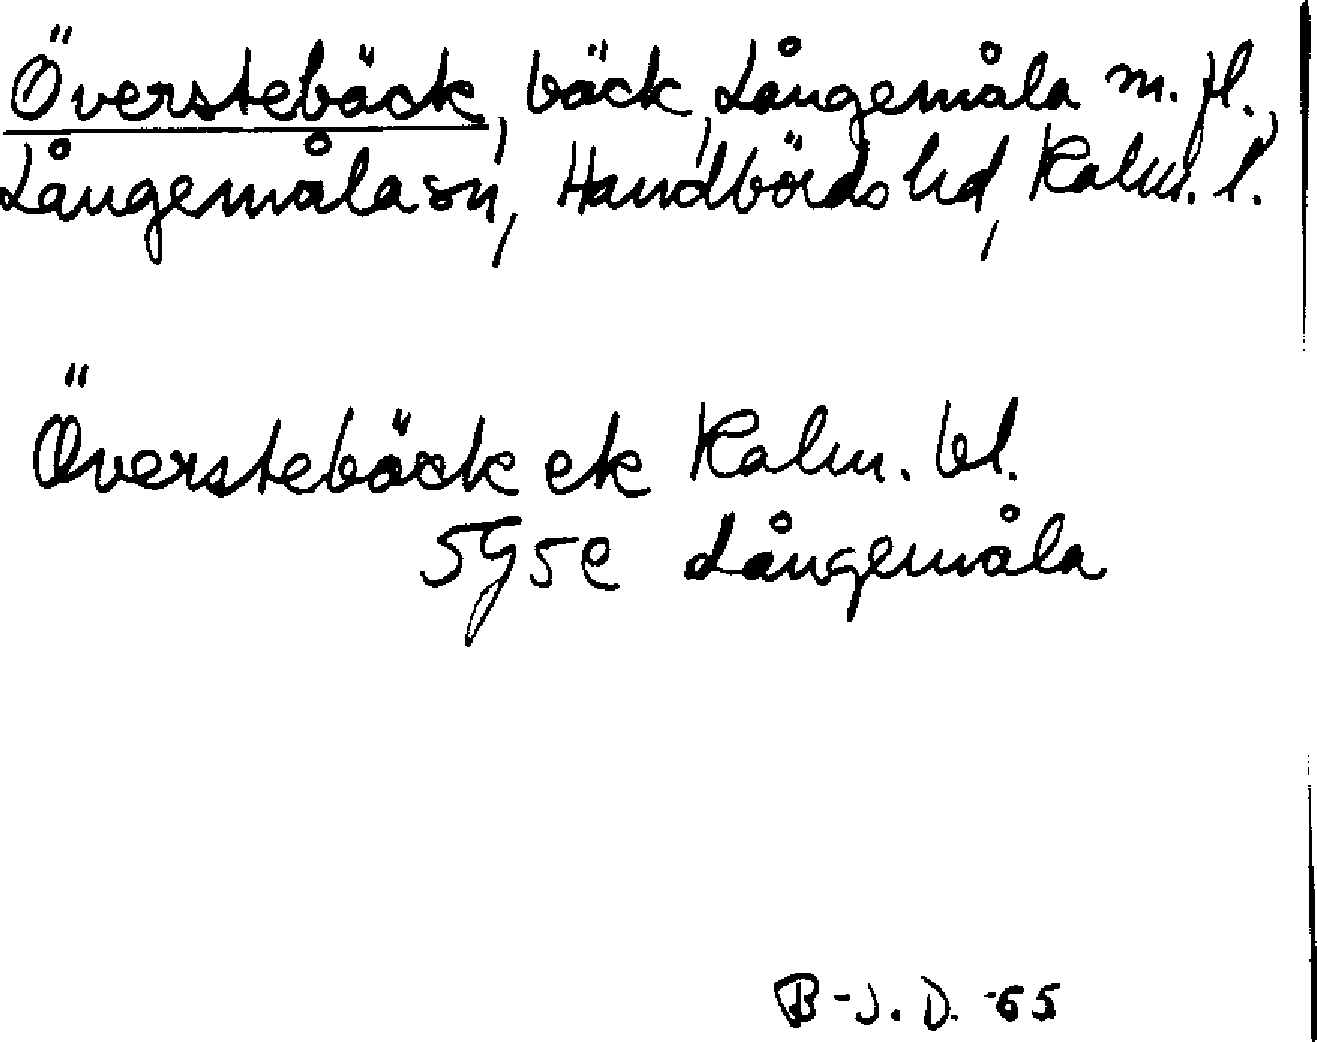 Överstebäck, bäck, Långemåla m. fl.,
Långemåla sn, Handbörds hd, Kalm. l.
Överstebäck ek Kalm. bl.
5G5e Långemåla
B-J. D. -65